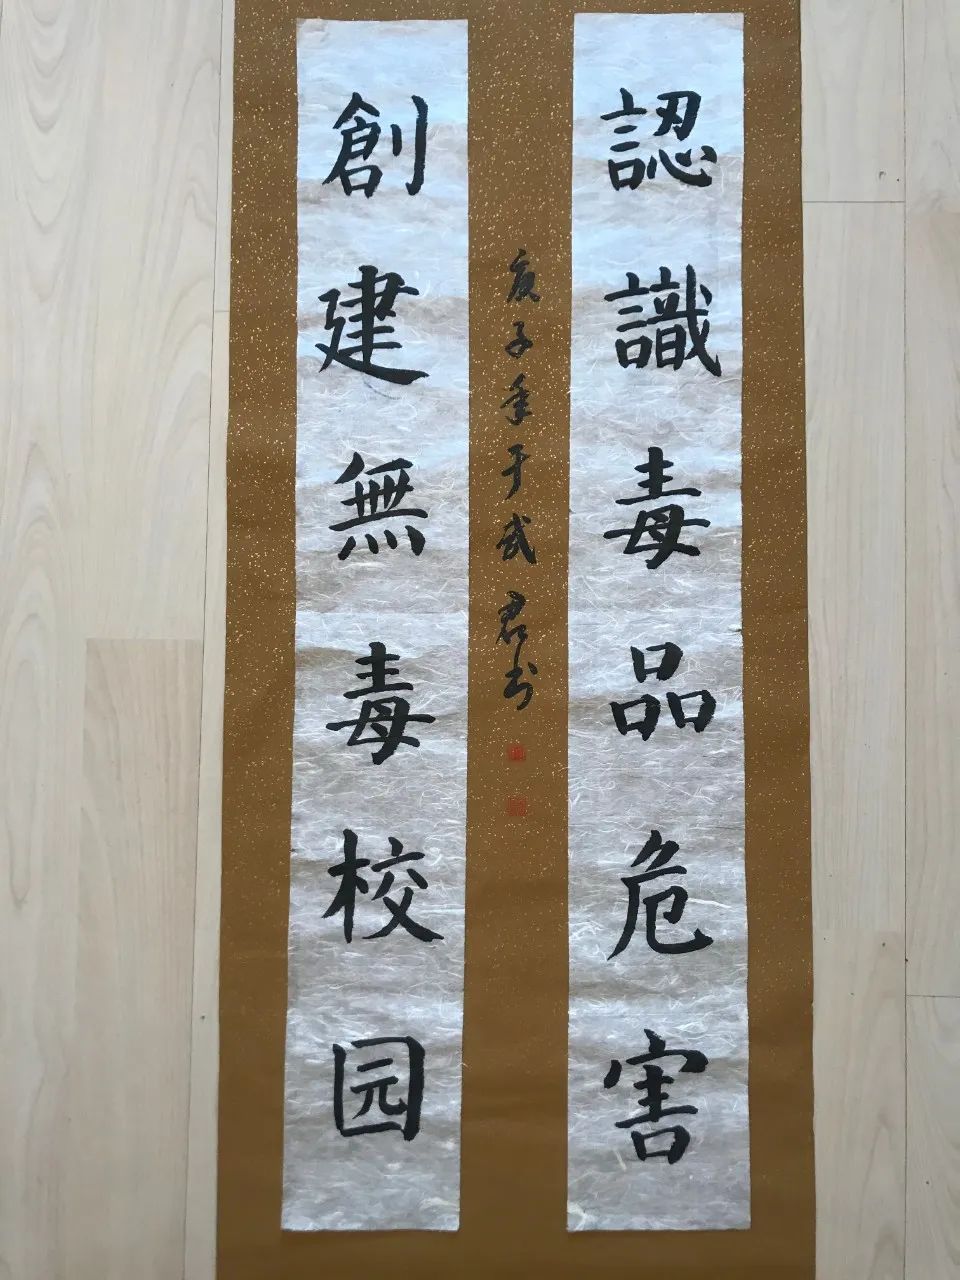 認識毒品危害
創建無毒校园
庚子年于武君书